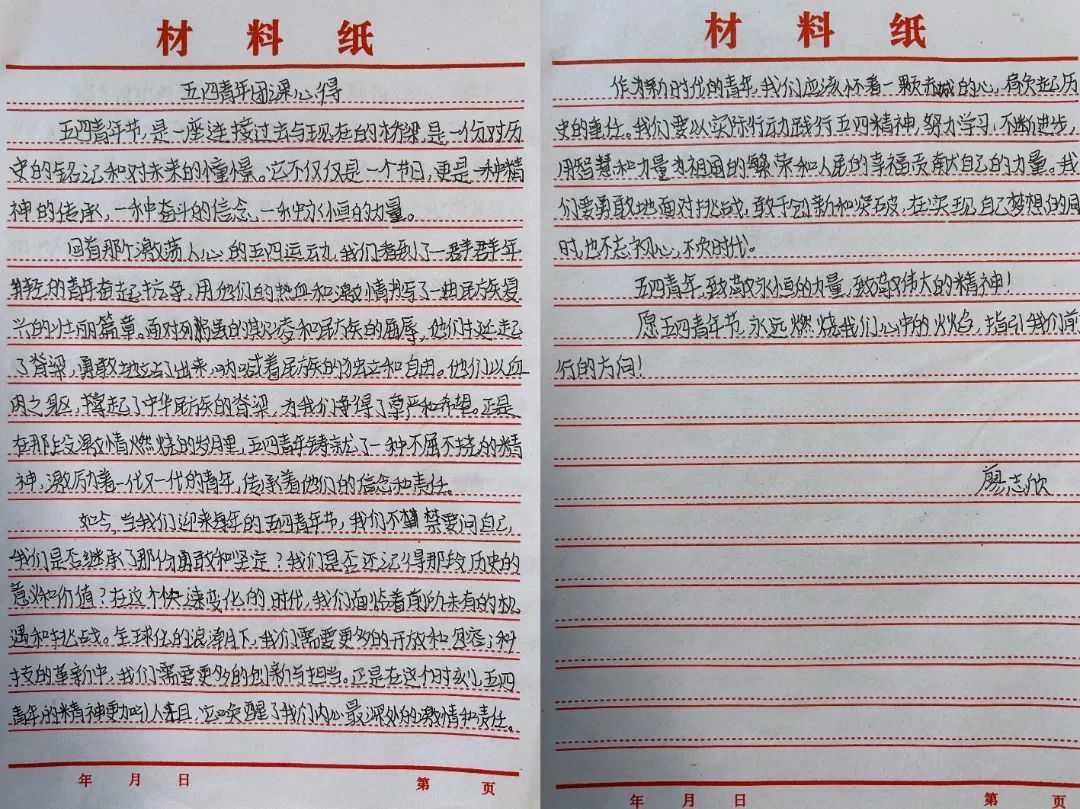 材 料 纸
五四青年团课心得
五四青年节,是一座连接过去与现在的桥梁,是一份对历
史的铭记和对未来的憧憬。它不仅仅是一个节日,更是一种精
神的传承,一种奋斗的信念,一种永恒的力量。
回首那个激荡人心的五四运动,我们看到了一群群年
轻的青年奋起抗争,用他们的热血和激情书写了一曲民族复
兴的壮丽篇章。面对列强的欺凌和民族的屈辱,他们挺起
了脊梁,勇敢地站了出来,呐喊着民族的独立和自由。他们以血
肉之躯,撑起了中华民族的脊梁,为我们争得了尊严和希望。正是
在那段激情燃烧的岁月里,五四青年铸就了一种不屈不挠的精
神,激励着一代又一代的青年,传承着他们的信念和责任。
如今,当我们迎来每年的五四青年节,我们不禁要问自己,
我们是否继承了那份勇敢和坚定?我们是否还记得那段历史的
意义和价值?在这个快速变化的时代,我们面临着前所未有的机
遇和挑战。全球化的浪潮下,我们需要更多的开放和包容;科
技的革新中,我们需要更多的创新与担当。正是在这个时刻,五四
青年的精神更加引人注目,它唤醒了我们内心最深处的激情和责任。
年 月 日 第 页
材 料 纸
作为新时代的青年,我们应该怀着一颗赤诚的心,肩负起历
史的重任。我们要以实际行动践行五四精神,努力学习,不断进步,
用智慧和力量为祖国的繁荣和人民的幸福贡献自己的力量。我
们要勇敢地面对挑战,敢于创新和突破,在实现自己梦想的同
时,也不忘初心,不负时代。
五四青年,致敬永恒的力量,致敬伟大的精神!
愿五四青年节,永远燃烧我们心中的火焰,指引我们前
行的方向!
廖志欣
年 月 日 第 页